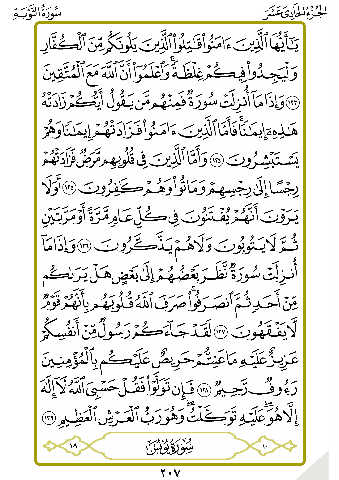 الجزء الحادي عشر سورة التوبة
يَٰٓأَيُّهَا ٱلَّذِينَ ءَامَنُوا۟ قَٰتِلُوا۟ ٱلَّذِينَ يَلُونَكُم مِّنَ ٱلْكُفَّارِ
وَلْيَجِدُوا۟ فِيكُمْ غِلْظَةً وَٱعْلَمُوٓا۟ أَنَّ ٱللَّهَ مَعَ ٱلْمُتَّقِينَ
١٢٣ وَإِذَا مَآ أُنزِلَتْ سُورَةٌ فَمِنْهُم مَّن يَقُولُ أَيُّكُمْ زَادَتْهُ
هَٰذِهِۦٓ إِيمَٰنًا فَأَمَّا ٱلَّذِينَ ءَامَنُوا۟ فَزَادَتْهُمْ إِيمَٰنًا وَهُمْ
يَسْتَبْشِرُونَ ١٢٤ وَأَمَّا ٱلَّذِينَ فِى قُلُوبِهِم مَّرَضٌ فَزَادَتْهُمْ
رِجْسًا إِلَىٰ رِجْسِهِمْ وَمَاتُوا۟ وَهُمْ كَٰفِرُونَ ١٢٥ أَوَلَا
يَرَوْنَ أَنَّهُمْ يُفْتَنُونَ فِى كُلِّ عَامٍ مَّرَّةً أَوْ مَرَّتَيْنِ
ثُمَّ لَا يَتُوبُونَ وَلَا هُمْ يَذَّكَّرُونَ ١٢٦ وَإِذَا مَآ
أُنزِلَتْ سُورَةٌ نَّظَرَ بَعْضُهُمْ إِلَىٰ بَعْضٍ هَلْ يَرَىٰكُم
مِّنْ أَحَدٍ ثُمَّ ٱنصَرَفُوا۟ صَرَفَ ٱللَّهُ قُلُوبَهُم بِأَنَّهُمْ قَوْمٌ
لَّا يَفْقَهُونَ ١٢٧ لَقَدْ جَآءَكُمْ رَسُولٌ مِّنْ أَنفُسِكُمْ
عَزِيزٌ عَلَيْهِ مَا عَنِتُّمْ حَرِيصٌ عَلَيْكُم بِٱلْمُؤْمِنِينَ
رَءُوفٌ رَّحِيمٌ ١٢٨ فَإِن تَوَلَّوْا۟ فَقُلْ حَسْبِىَ ٱللَّهُ لَآ إِلَٰهَ
إِلَّا هُوَ عَلَيْهِ تَوَكَّلْتُ وَهُوَ رَبُّ ٱلْعَرْشِ ٱلْعَظِيمِ ١٢٩
سُورَةُ يُونُسَ
٢٠٧